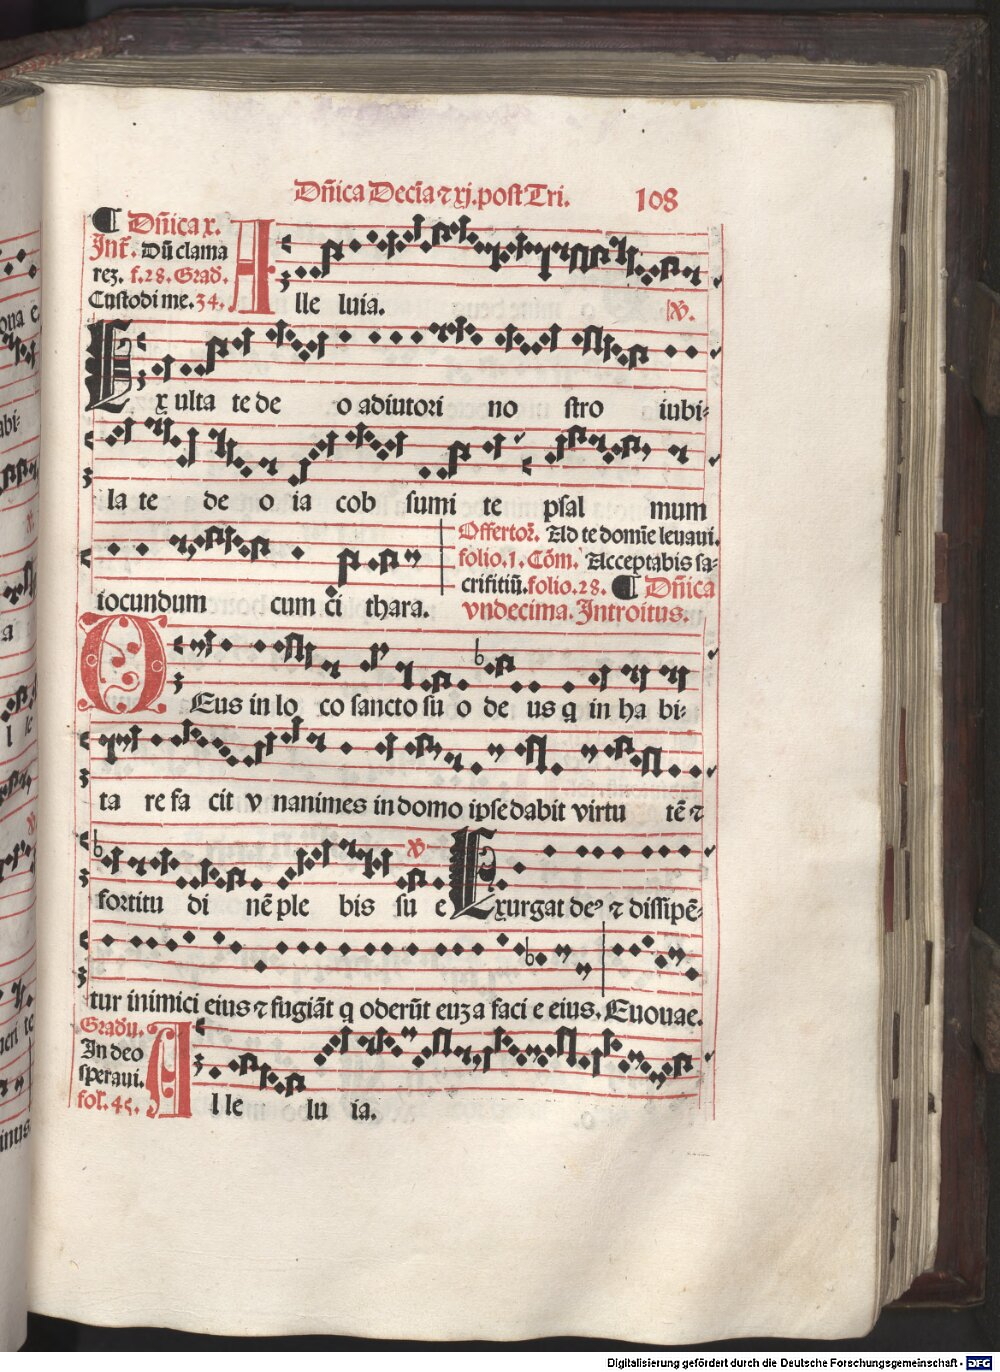 Dñica Decĩa ⁊ xj. post Tri. 108
¶ Dñica x.
Int̃. Dũ clama
rez. f.28. Grad̃.
Custodi me. 34.
A lle luia. ℣.
Ex ulta te de o adiutori no stro iubi-
la te de o ia cob sumi te psal mum
iocundum cum ci thara.
Offertor̃. Ad te domĩe leuaui.
folio.1. Cõm. Acceptabis sa-
crifitiũ. folio.28. ¶ Dñica
vndecima. Introitus.
DEus in lo co sancto su o de us q in ha bi-
ta re fa cit v nanimes in domo ipse dabit virtu tẽ ⁊
fortitu di nẽ ple bis su e ℣ Exurgat deꝰ ⁊ dissipẽ-
tur inimici eius ⁊ fugiãt q oderũt euʒ a faci e eius. Euouae.
Gradu.
In deo
speraui.
fol̃. 45.
A lle lu ia.
Digitalisierung gefördert durch die Deutsche Forschungsgemeinschaft - DFG